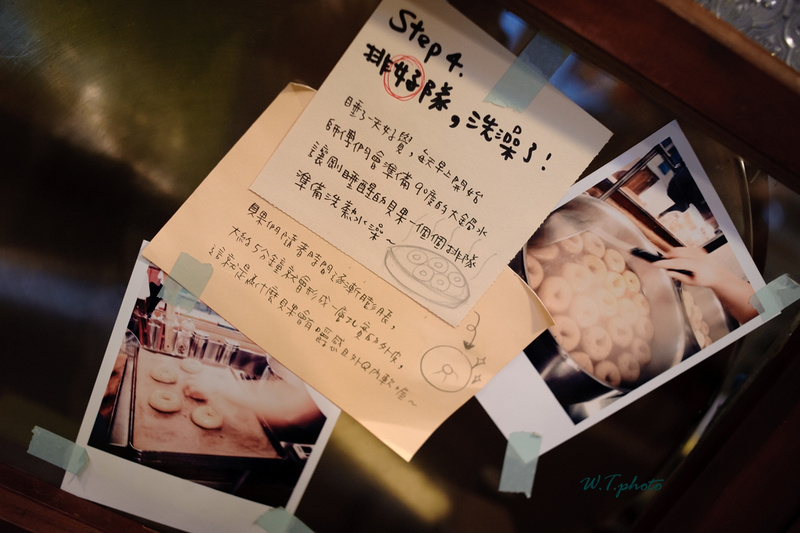 Step 4.
排好隊，洗澡了！
睡了一天好覺，每天早上開始
師傅們會準備90度的大鍋水
讓剛睡醒的貝果一個個排隊
準備洗熱水澡～
貝果們隨著時間逐漸膨脹，
大約5分鐘就會形成一層扎實的外皮，
這就是為什麼貝果會有嚼感且外Q內軟喔～
W.T.photo